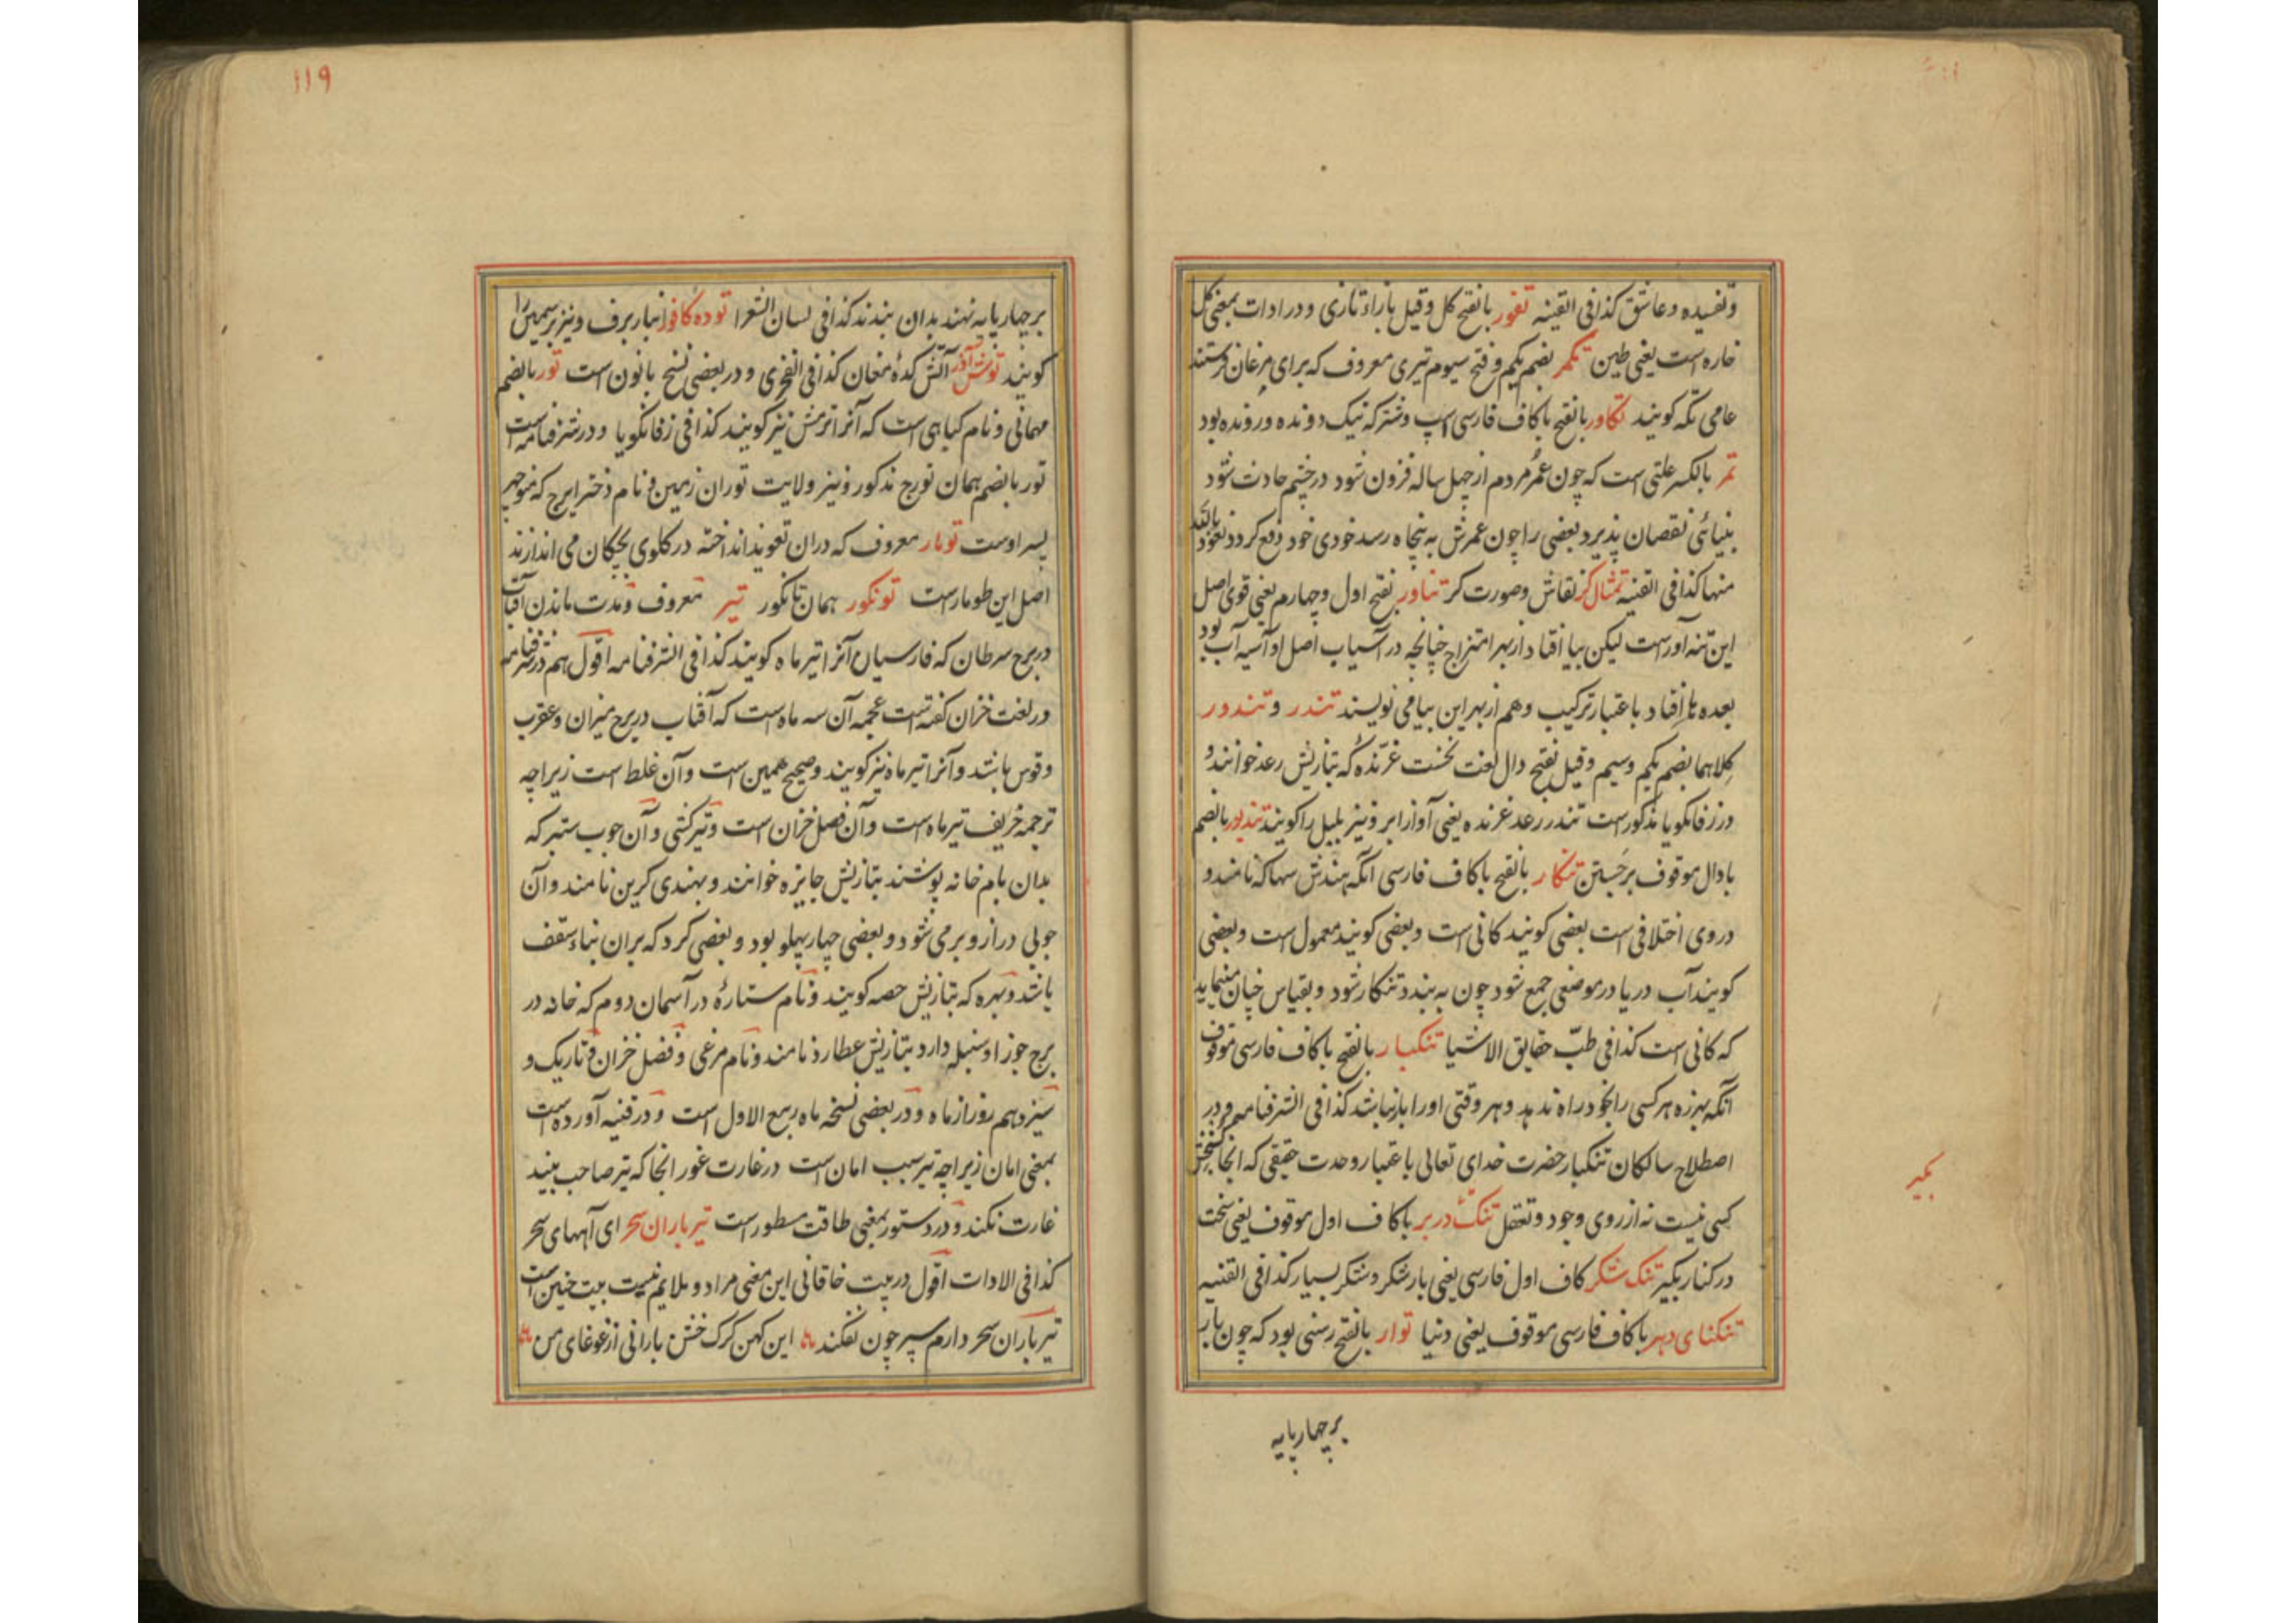 وتفسیده و عاشق کذا فی القنیه تغور بالفتح کل وقیل بازاء تازی و در ادات بمعنی کل
خاره است یعنی طین تکمر بضم یکم و فتح سیوم تیری معروف که برای مرغان فرستند
عامی تکه کویند تکاور بالفتح با کاف فارسی اسپ و شتر که نیک دونده و رونده بود
تمر بالکسر علتی است که چون عمر مردم از چهل ساله فزون شود در چشم حادث شود
بینائی نقصان پذیرد بعضی را چون عمرش به پنجاه رسد خودی خود دفع کردد نعوذ بالله
منها کذا فی القنیه تمثال کر نقاش و صورت کر تناور بفتح اول و چهارم یعنی قوی اصل
این تنه آور است لیکن بیا افتاد از بهر امتزاج چنانچه در آسیاب اصل او آسیه آب بود
بعده ها افتاد باعتبار ترکیب و هم از بهر این بیا می نویسند تندر و تندور
کلاهما بضم یکم و سیم و قیل بفتح دال لغت نخست غرنده که بتازیش رعد خوانند و
در زفانکویا مذکور است تندر رعد غرنده یعنی آواز ابر و نیز بلبل را کویند تندیور بالضم
با دال موقوف برجستن تنکار بالفتح با کاف فارسی آنکه هندش سهاکه نامند و
در وی اختلافی است بعضی کویند کانی است و بعضی کویند معمول است و بعضی
کویند آب دریا در موضعی جمع شود چون به بندد تنکار شود و بقیاس چنان مینماید
که کانی است کذا فی طب حقایق الاشیا تنکبار بالفتح با کاف فارسی موقوف
آنکه بهرزه هر کسی را بخود راه ندهد و هر وقتی او را بار نباشد کذا فی الشرفنامه و در
اصطلاح سالکان تنکبار حضرت خدای تعالی باعتبار وحدت حقیقی که آنجا کنجش
کسی نیست نه از روی وجود و تعقل تنک در بر با کاف اول موقوف یعنی سخت
در کنار بکیر تنک شکر کاف اول فارسی یعنی بار شکر و شکر بسیار کذا فی القنیه
تنکنای دهر با کاف فارسی موقوف یعنی دنیا توار بالفتح رسنی بود که چون بار
بر چهار پایه
بکیر
۱۱۹
بر چهار پایه نهند بدان بندند کذا فی لسان الشعرا توده کافور انبار برف و نیز بر سیمین را
کویند توش آذر آتش کدۀ مغان کذا فی الفخری و در بعضی نسخ بانون است تور بالضم
مهمانی و نام کیاهی است که آنرا ترش نیز کویند کذا فی زفانکویا و در شرفنامه است
تور بالضم همان تورج مذکور و نیز ولایت توران زمین و نام دختر ایرج که منوچهر
پسر اوست تومار معروف که در آن تعویذ انداخته در کلوی بچکان می اندازند
اصل این طومار است تونکور همان تانکور تیر معروف و مدت ماندن آفتاب
در برج سرطان که فارسیان آنرا تیر ماه کویند کذا فی الشرفنامه اقول هم در شرفنامه
در لغت خزان کفته است عجمه آن سه ماه است که آفتاب در برج میزان و عقرب
و قوس باشد و آنرا تیر ماه نیز کویند و صحیح همین است و آن غلط است زیرا چه
ترجمه خریف تیر ماه است و آن فصل خزان است و تیر کشتی و آن چوب ستبر که
بدان بام خانه پوشند بتازیش جایزه خوانند و بهندی کرین نامند و آن
چوبی دراز و بر می شود و بعضی چهار پهلو بود و بعضی کرد که بران بناء سقف
باشد و بهره که بتازیش حصه کویند و نام ستارۀ در آسمان دوم که خانه در
برج جوزا و سنبله دارد بتازیش عطارد نامند و نام مرغی و فصل خزان و تاریک و
سیزدهم روز از ماه و در بعضی نسخه ماه ربیع الاول است و در قنیه آورده است
بمعنی امان زیرا چه تیر سبب امان است در غارت غور آنجا که تیر صاحب بیند
غارت نکند و در دستور بمعنی طاقت مسطور است تیر باران سحر ای آههای سحر
کذا فی الادات اقول در بیت خاقانی این معنی مراد و ملایم نیست بیت چنین است
تیر باران سحر دارم سپر چون نفکند این کهن کرک خشن بارانی از غوغای من